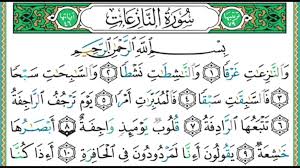 سُورَةُ النَّازِعَاتِ
بِسْمِ ٱللَّهِ ٱلرَّحْمَـٰنِ ٱلرَّحِيمِ
وَٱلنَّـٰزِعَـٰتِ غَرْقًا ١ وَٱلنَّـٰشِطَـٰتِ نَشْطًا ٢ وَٱلسَّـٰبِحَـٰتِ سَبْحًا
٣ فَٱلسَّـٰبِقَـٰتِ سَبْقًا ٤ فَٱلْمُدَبِّرَٰتِ أَمْرًا ٥ يَوْمَ تَرْجُفُ ٱلرَّاجِفَةُ
٦ تَتْبَعُهَا ٱلرَّادِفَةُ ٧ قُلُوبٌ يَوْمَئِذٍ وَاجِفَةٌ ٨ أَبْصَـٰرُهَا
خَـٰشِعَةٌ ٩ يَقُولُونَ أَءِنَّا لَمَرْدُودُونَ فِى ٱلْحَافِرَةِ ١٠ أَءِذَا كُنَّا